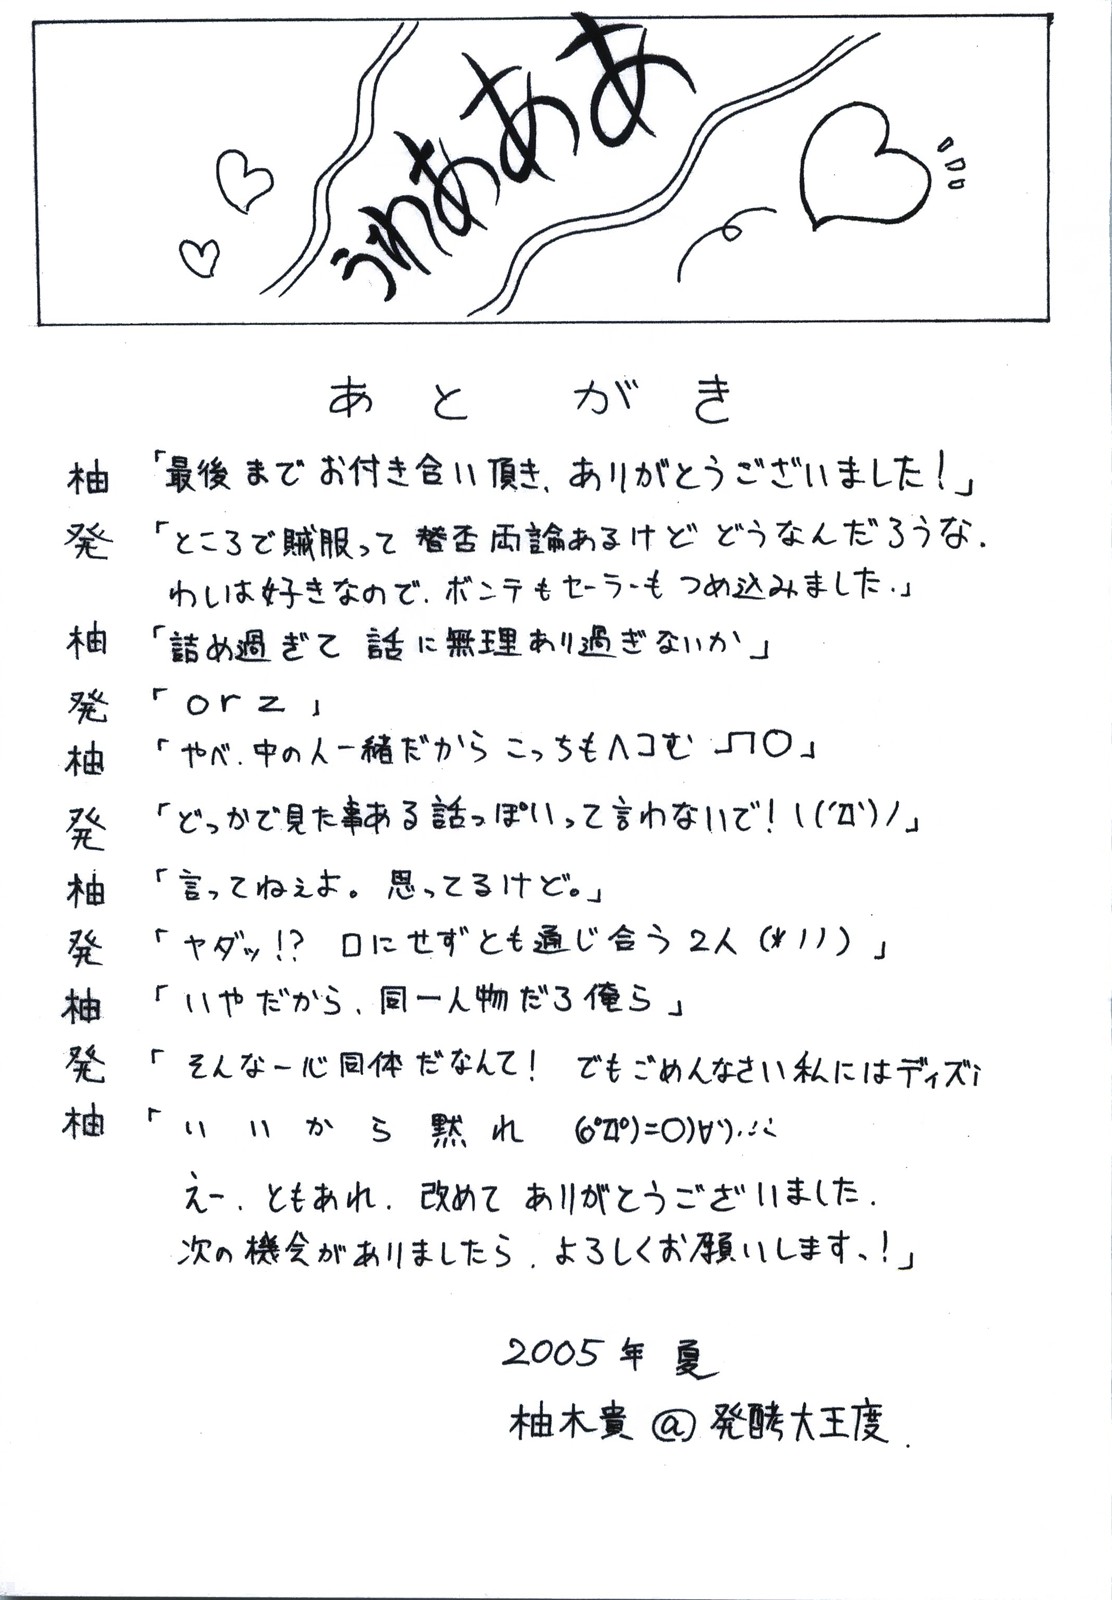 うわああああ
あとがき
柚「最後までお付き合い頂き、ありがとうございました！」
発「ところで賊服って賛否両論あるけどどうなんだろうな.
わしは好きなので、ボンテもセーラーもつめ込みました.」
柚「詰め過ぎて話に無理あり過ぎないか」
発「orz」
柚「やべ、中の人一緒だからこっちもヘコむ ＿∏○」
発「どっかで見た事ある話っぽいって言わないで！\(ﾟДﾟ)/」
柚「言ってねぇよ。思ってるけど。」
発「ヤダッ!? 口にせずとも通じ合う2人 (*ﾉﾉ)」
柚「いやだから、同一人物だろ俺ら」
発「そんな一心同体だなんて！ でもごめんなさい私にはディズi
柚「いいから黙れ (oﾟДﾟ)=○)∀`).･:∵
えー、ともあれ、改めてありがとうございました.
次の機会がありましたら、よろしくお願いします、！」
2005年 夏
柚木貴@発酵大王度.